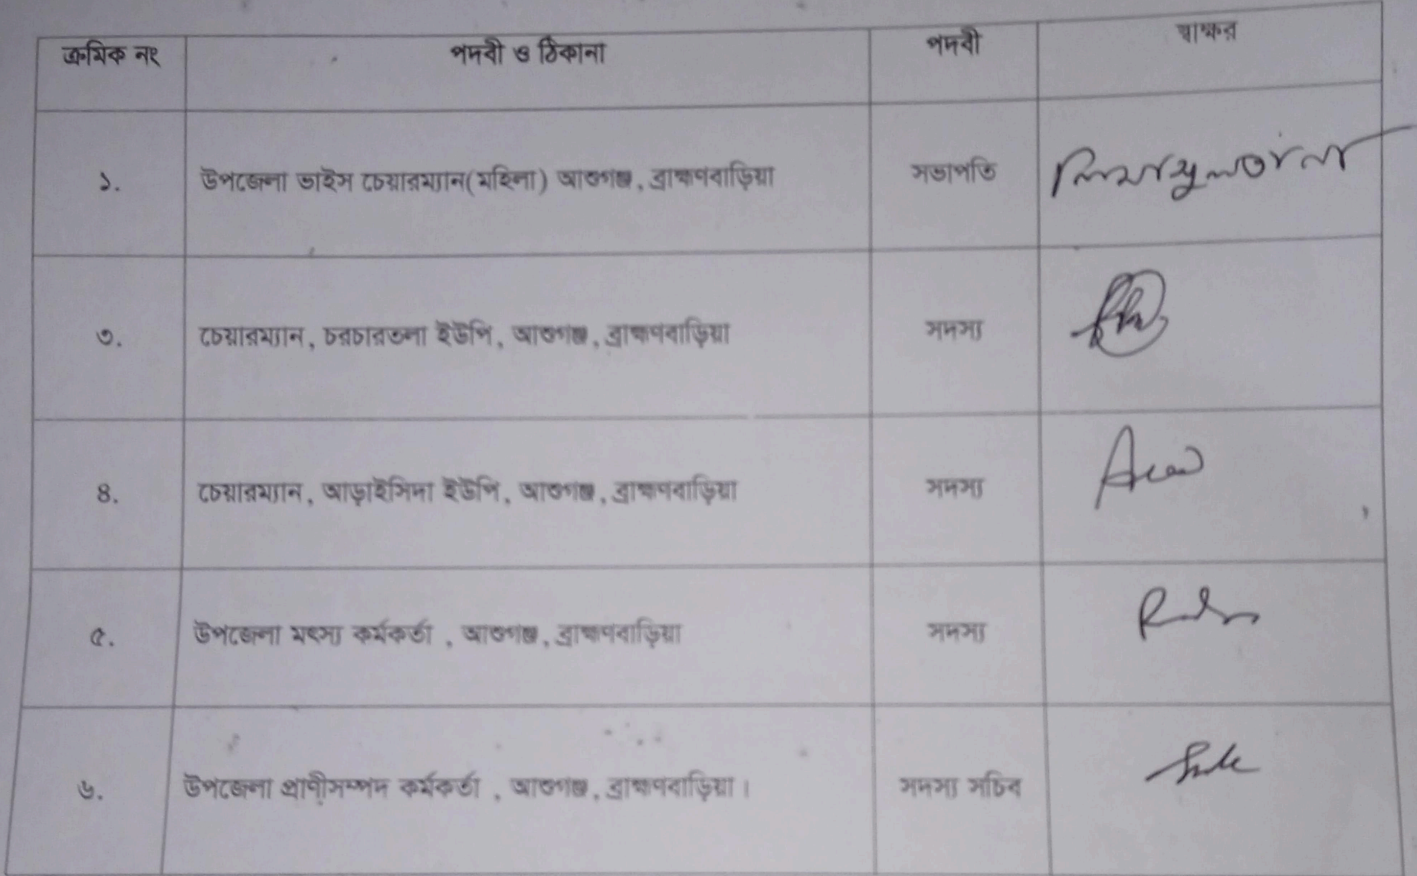 ক্রমিক নং পদবী ও ঠিকানা পদবী স্বাক্ষর
১. উপজেলা ভাইস চেয়ারম্যান(মহিলা) আশুগঞ্জ, ব্রাহ্মণবাড়িয়া সভাপতি
৩. চেয়ারম্যান, চরচারতলা ইউপি, আশুগঞ্জ, ব্রাহ্মণবাড়িয়া সদস্য
৪. চেয়ারম্যান, আড়াইসিদা ইউপি, আশুগঞ্জ, ব্রাহ্মণবাড়িয়া সদস্য
৫. উপজেলা মৎস্য কর্মকর্তা , আশুগঞ্জ, ব্রাহ্মণবাড়িয়া সদস্য
৬. উপজেলা প্রাণীসম্পদ কর্মকর্তা , আশুগঞ্জ, ব্রাহ্মণবাড়িয়া। সদস্য সচিব